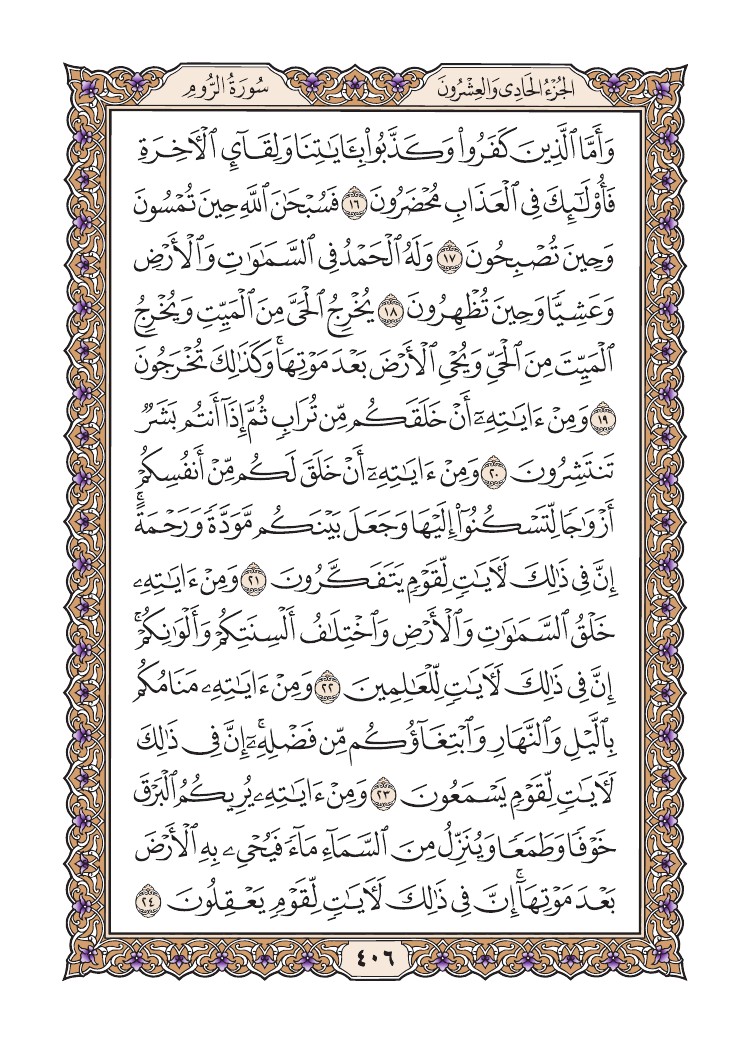 الجُزْءُ الحَادِى وَالعِشْرُونَ
سُورَةُ الرُّومِ
وَأَمَّا ٱلَّذِينَ كَفَرُوا۟ وَكَذَّبُوا۟ بِـَٔايَـٰتِنَا وَلِقَآئِ ٱلْـَٔاخِرَةِ
فَأُو۟لَـٰٓئِكَ فِى ٱلْعَذَابِ مُحْضَرُونَ ١٦ فَسُبْحَـٰنَ ٱللَّهِ حِينَ تُمْسُونَ
وَحِينَ تُصْبِحُونَ ١٧ وَلَهُ ٱلْحَمْدُ فِى ٱلسَّمَـٰوَٰتِ وَٱلْأَرْضِ
وَعَشِيًّا وَحِينَ تُظْهِرُونَ ١٨ يُخْرِجُ ٱلْحَىَّ مِنَ ٱلْمَيِّتِ وَيُخْرِجُ
ٱلْمَيِّتَ مِنَ ٱلْحَىِّ وَيُحْىِ ٱلْأَرْضَ بَعْدَ مَوْتِهَا ۚ وَكَذَٰلِكَ تُخْرَجُونَ
١٩ وَمِنْ ءَايَـٰتِهِۦٓ أَنْ خَلَقَكُم مِّن تُرَابٍ ثُمَّ إِذَآ أَنتُم بَشَرٌ
تَنتَشِرُونَ ٢٠ وَمِنْ ءَايَـٰتِهِۦٓ أَنْ خَلَقَ لَكُم مِّنْ أَنفُسِكُمْ
أَزْوَٰجًا لِّتَسْكُنُوٓا۟ إِلَيْهَا وَجَعَلَ بَيْنَكُم مَّوَدَّةً وَرَحْمَةً ۚ
إِنَّ فِى ذَٰلِكَ لَـَٔايَـٰتٍ لِّقَوْمٍ يَتَفَكَّرُونَ ٢١ وَمِنْ ءَايَـٰتِهِۦ
خَلْقُ ٱلسَّمَـٰوَٰتِ وَٱلْأَرْضِ وَٱخْتِلَـٰفُ أَلْسِنَتِكُمْ وَأَلْوَٰنِكُمْ ۚ
إِنَّ فِى ذَٰلِكَ لَـَٔايَـٰتٍ لِّلْعَـٰلِمِينَ ٢٢ وَمِنْ ءَايَـٰتِهِۦ مَنَامُكُم
بِٱلَّيْلِ وَٱلنَّهَارِ وَٱبْتِغَآؤُكُم مِّن فَضْلِهِۦٓ ۚ إِنَّ فِى ذَٰلِكَ
لَـَٔايَـٰتٍ لِّقَوْمٍ يَسْمَعُونَ ٢٣ وَمِنْ ءَايَـٰتِهِۦ يُرِيكُمُ ٱلْبَرْقَ
خَوْفًا وَطَمَعًا وَيُنَزِّلُ مِنَ ٱلسَّمَآءِ مَآءً فَيُحْىِۦ بِهِ ٱلْأَرْضَ
بَعْدَ مَوْتِهَآ ۚ إِنَّ فِى ذَٰلِكَ لَـَٔايَـٰتٍ لِّقَوْمٍ يَعْقِلُونَ ٢٤
٤٠٦